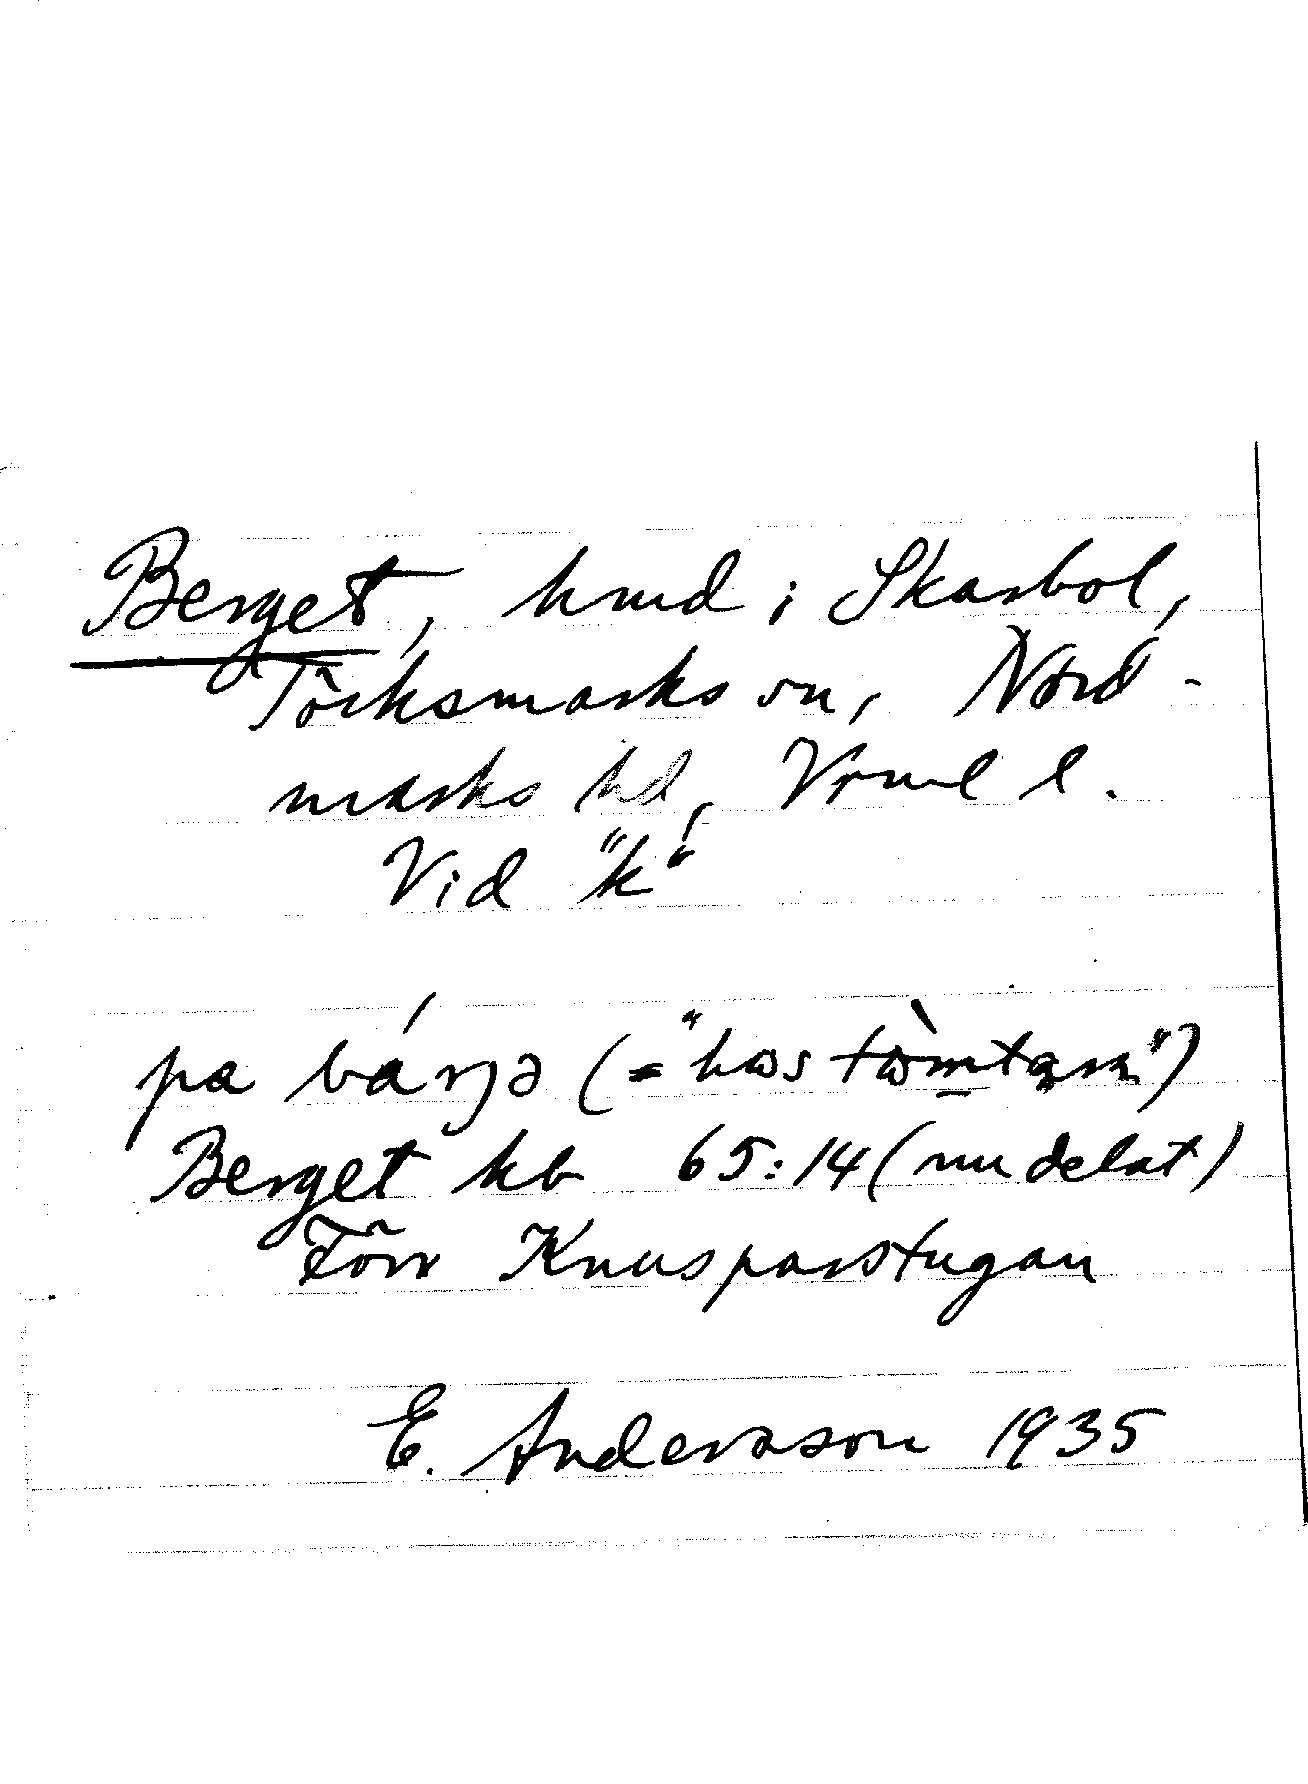 Berget, hmd i Skarbol,
Töcksmarks sn, Nord-
marks hd, Vrml l.
Vid "k"
pa bárjə (="hos
Berget kb 65:14 (nu delat)
Förr Knusparstugan
E. Andersson 1935